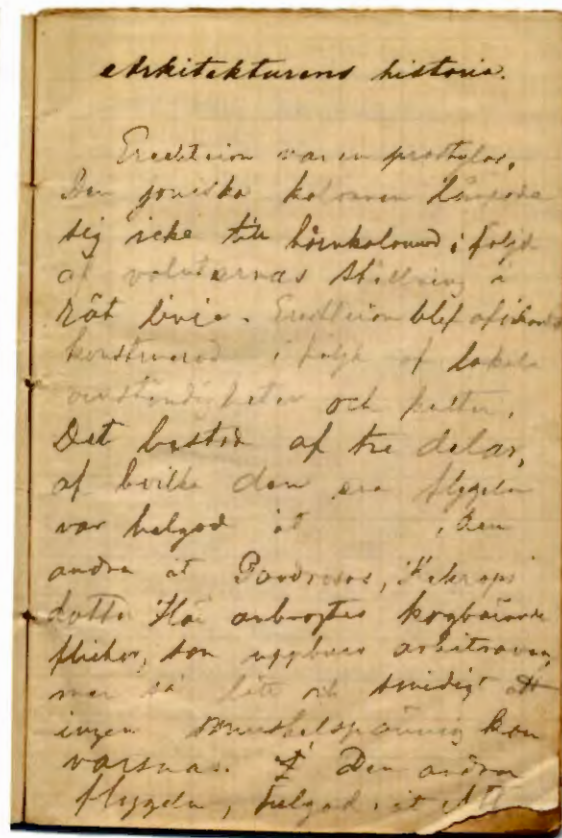 Arkitekturens historia.
Erechteion var en prostylos.
Den joniska kolonnen lämpade
sig icke till hörnkolonn i följd
af voluternas ställning i
rät linie. Erechteion blef
konstruerad i följd af lokala
omständigheter och
Det bestod af tre delar,
af hvilka den ena flygeln
var helgad åt , den
andra åt Pandrosos, Kekrops
dotter. Här anbragtes
flickor, som uppburo arkitraven,
men så lätt och smidigt att
ingen muskelspänning kan
varsnas. Den andra
flygeln, helgad åt